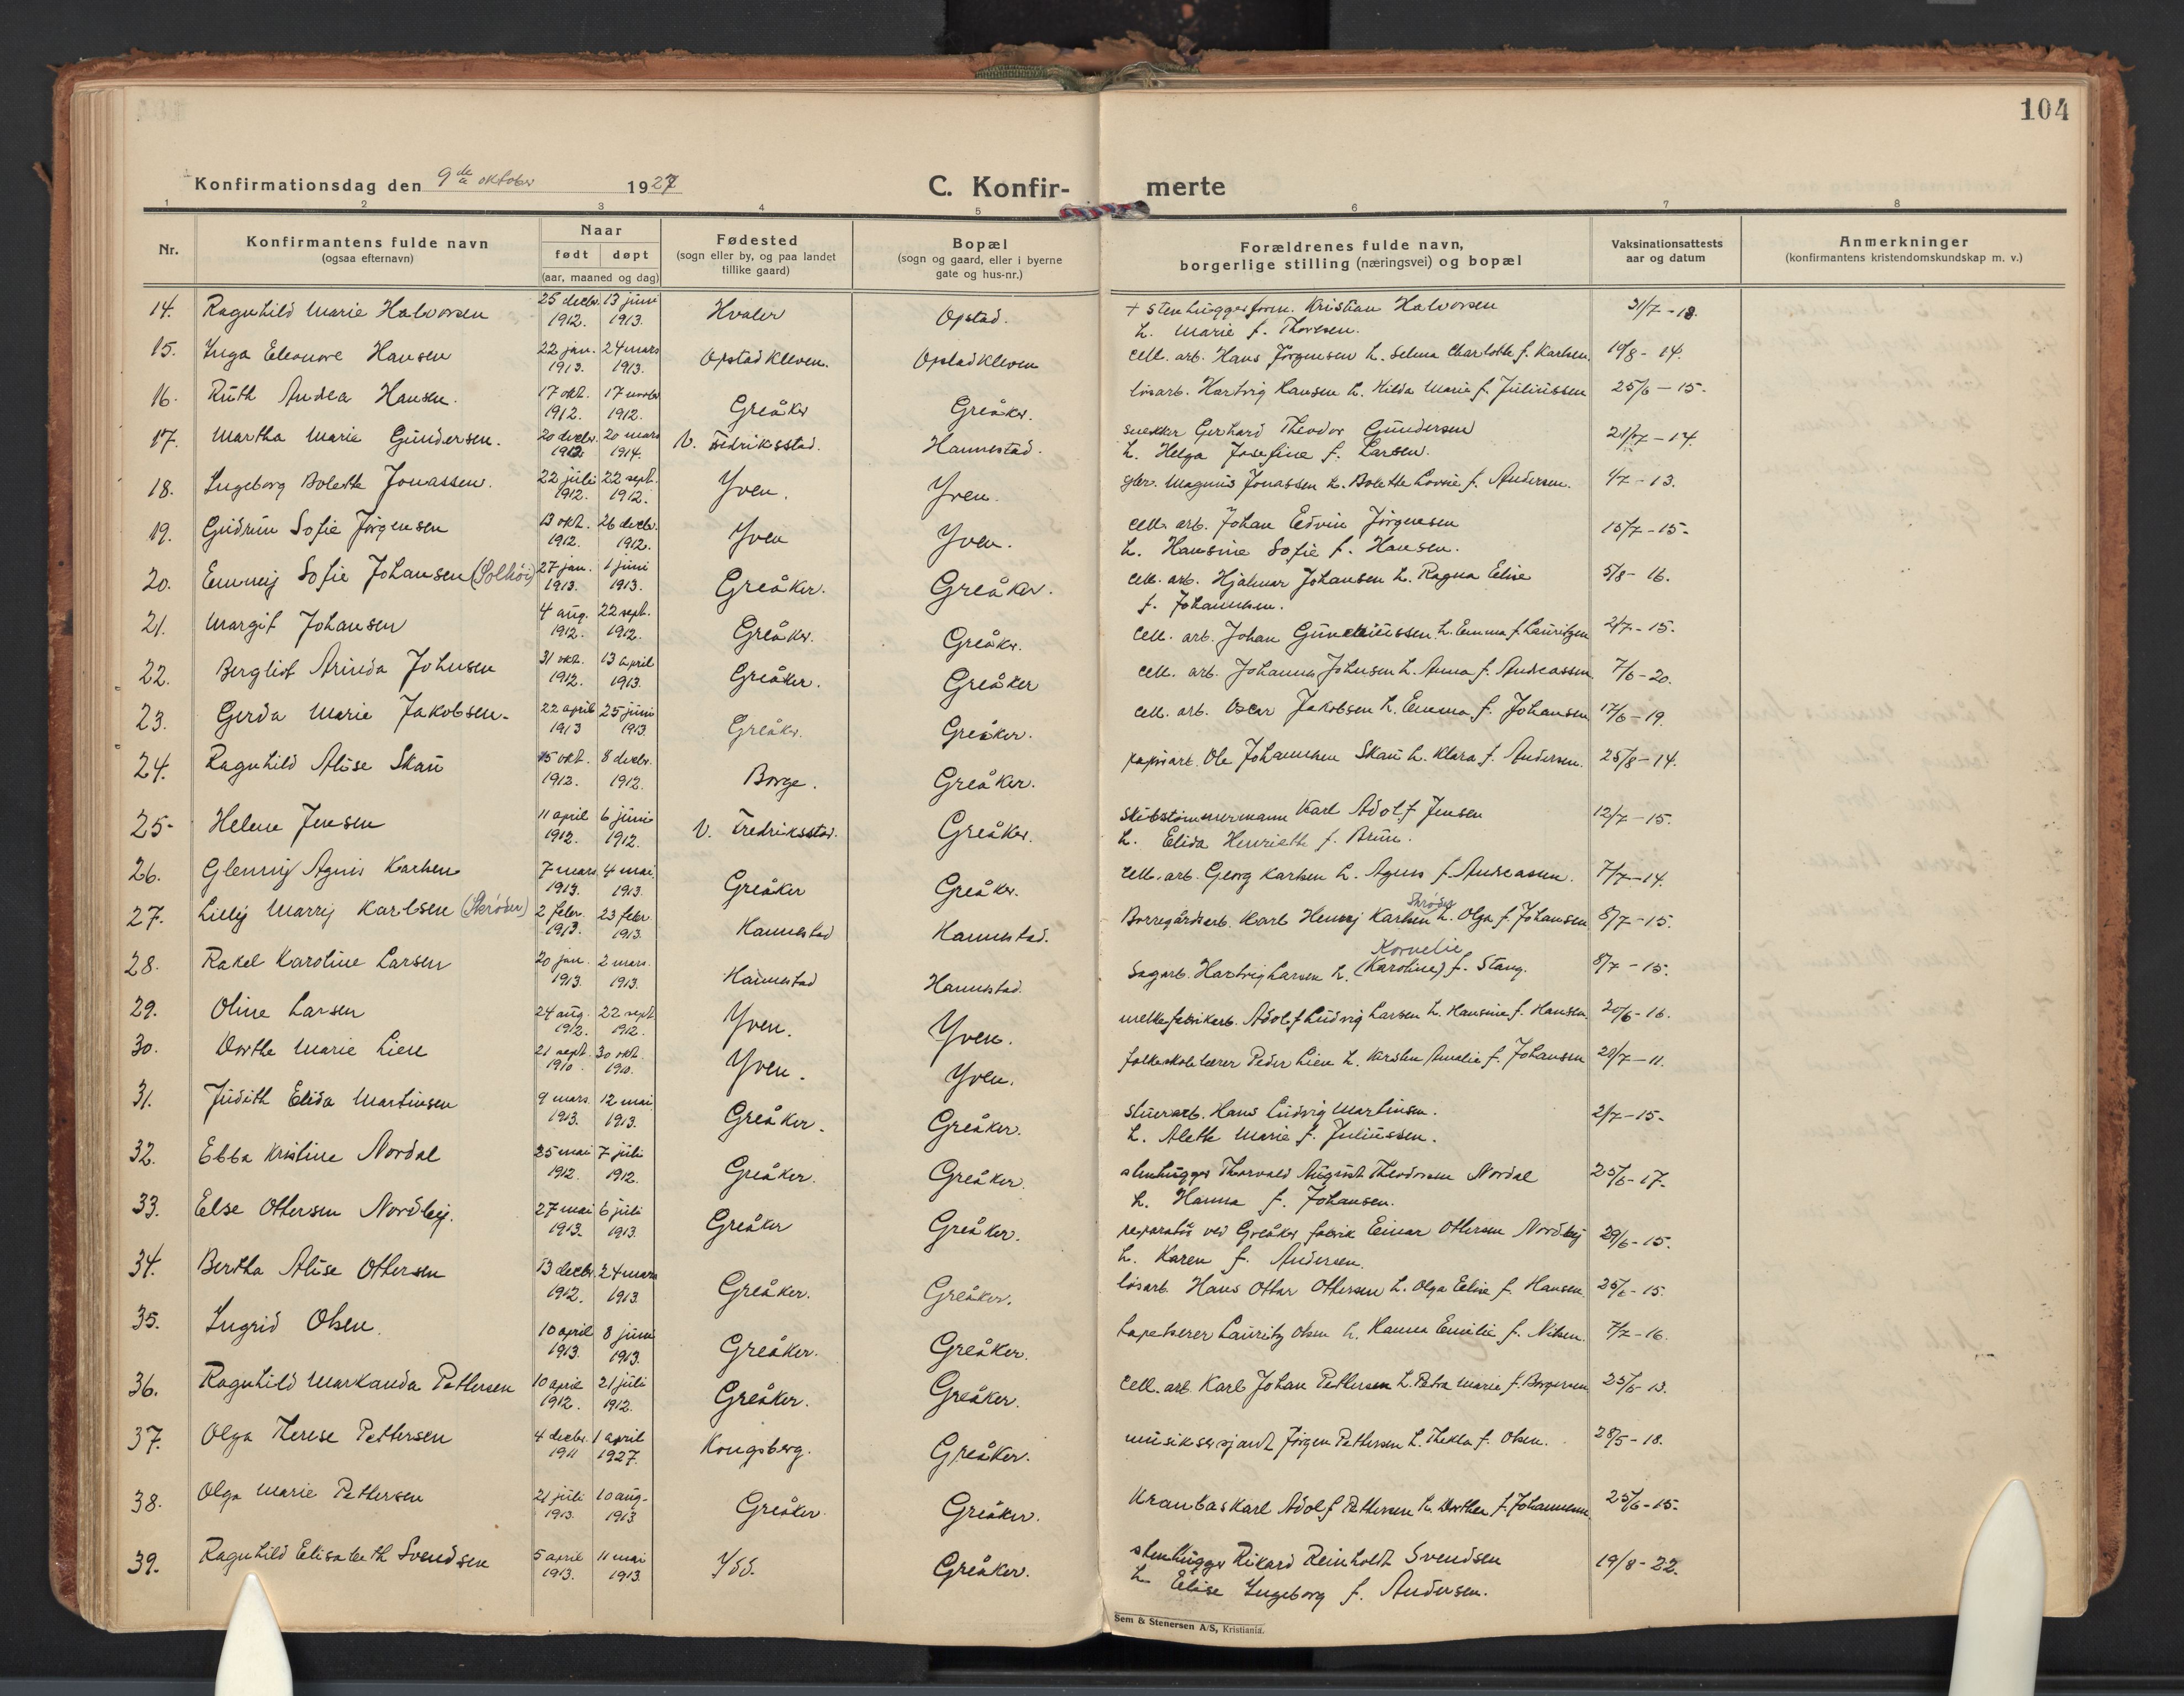 104
Konfirmationsdag den 9de oktober 1927 C. Konfir- merte
1 2 3 4 5 6 7 8
Nr. Konfirmantens fulde navn (ogsaa efternavn) Naar født døpt (aar, maaned og dag) Fødested (sogn eller by, og paa landet tillike gaard) Bopæl (sogn og gaard, eller i byerne gate og hus-nr.) Forældrenes fulde navn, borgerlige stilling (næringsvei) og bopæl Vaksinationsattests aar og datum Anmerkninger (konfirmantens kristendomskundskap m. v.)
14. Ragnhild Marie Halvorsen 25 decbr. 1912. 13 juni 1913. Hvaler Opstad. + stenhuggerform. Kristian Halvorsen h. Marie f. Thoresen. 31/7-18.
15. Inga Eleonore Hansen 22 jan. 1913. 24 mars 1913. Opstad Kleven. Opstad Kleven cell. arb. Hans Jörgensen h. Selma Charlotte f. Karlsen. 19/8-14.
16. Ruth Andrea Hansen. 17 okt. 1912. 17 novbr 1912. Greåker Greåker. lösarb. Hartvig Hansen h. Hilda Marie f. Juliussen 25/6-15.
17. Martha Marie Gundersen. 20 decbr. 20 mars 1914. V. Fredriksstad. Hannestad. snekker Gerhard Theodor Gundersen h. Helga Josefine f. Larsen. 21/7-14.
18. Ingeborg Bolette Jonassen. 22 juli 1912. 22 sept. 1912. Yven. Yven. Magnus Jonassen h. Bolette Lovise f. Andersen. 4/7-13.
19. Gudrun Sofie Jörgensen 13 okt. 1912. 26 decbr. 1912. Yven Yven. cell. arb. Johan Edvin Jörgensen h. Hansine Sofie f. Hansen. 15/7-15.
20. Emmy Sofie Johansen (Solhöi) 27 jan. 1913. 1 juni 1913. Greåker. Greåker. cell. arb. Hjalmar Johansen h. Ragna Elise f. Johannesen. 5/8-16.
21. Margit Johansen 4 aug. 1912. 22 sept. 1912. Greåker. Greåker. cell. arb. Johan h. Emma f. Lauritzen 2/7-15.
22. Bergliot Arinda Johnsen 31 okt. 1912. 13 april 1913. Greåker. Greåker cell. arb. Johannes Johnsen h. Anna f. Andreassen. 7/6-20.
23. Gerda Marie Jakobsen. 22 april 1913 25 juni 1913. Greåker. Greåker. cell. arb. Oscar Jakobsen h. Emma f. Johansen 17/6-19.
24. Ragnhild Alise Skau 15 okt. 1912. 8 decbr. 1912. Borge. Greåker. papirarb. Ole Johannesen Skau h. Klara f. Andersen. 25/8-14.
25. Helene Jensen 11 april 1912. 6 juni 1912. V. Fredriksstad. Greåker. Skibstömmermann Karl Adolf Jensen h. Elida Henriette f. Brun. 12/7-15.
26. Glenny Agnes Karlsen 7 mars 1913. 4 mai. 1913. Greåker Greåker. cell. arb. Georg Karlsen h. Agnes f. Andreassen. 7/7-14.
27. Lilly Marry Karlsen (Skröder) 2 febr. 1913. 23 febr 1913. Hannestad Hannestad. Borregårdsarb. Karl Henry Karlsen Skröder h. Olga f. Johansen 8/7-15.
28. Rakel Karoline Larsen 20 jan. 1913. 2 mars. 1913. Hannestad Hannestad. Sagarb. Hartvig Larsen h. (Karoline) Kornelie f. Stang. 8/7-15.
29. Oline Larsen 24 aug. 1912. 22 sept 1912. Yven. Yven. melkefabrikarb. Adolf Ludvig Larsen h. Hansine f. Hansen. 20/6-16.
30. Dorthe Marie Lien 21 sept. 1910. 30 okt. 1910. Yven. Yven. folkeskolelærer Peder Lien h. Kirsten Amalie f. Johansen 20/7-11.
31. Judith Elida Martinsen 9 mars. 1913. 12 mai. 1913. Greåker. Greåker. stuerarb. Hans Ludvig Martinsen. h. Alette Marie f. Juliussen. 2/7-15.
32. Ebba Kristine Nordal 25 mai 1912. 7 juli 1912. Greåker. Greåker. stenhugger Thorvald August Theodorsen Nordal h. Hanna f. Johansen. 25/6-17.
33. Else Ottersen Nordby. 27 mai 1913. 6 juli 1913. Greåker Greåker. reparatör ved Greåker fabrik Einar Ottersen Nordby h. Karen f. Andersen. 29/6-15.
34. Bertha Alise Ottersen 13 decbr. 1912. 24 mars 1913. Greåker. Greåker. lösarb. Hans Ottar Ottersen h. Olga Eline f. Hansen. 25/6-15.
35. Ingrid Olsen. 10 april 1913. 8 juni 1913. Greåker. Greåker. tapetserer Lauritz Olsen h. Hanna Emilie f. Nilsen. 7/7-16.
36. Ragnhild Markanda Pettersen 10 april 1912. 21 juli 1912. Greåker. Greåker. cell. arb. Karl Johan Pettersen h. Petra Marie f. Borgersen. 25/6-13.
37. Olga Therese Pettersen 4 decbr. 1911 1 april 1927. Kongsberg. Greåker. musiksersjant Jörgen Pettersen h. Thekla f. Olsen. 28/5-18.
38. Olga Marie Pettersen 21 juli 1913. 10 aug. 1913 Greåker. Greåker. Kranbas Karl Adolf Pettersen h. Dorthea f. Johannesen 25/6-15.
39. Ragnhild Elisabeth Svendsen 5 april 1913. 11 mai 1913. Idd. Greåker. stenhugger Rikard Reinholdt Svendsen h. Elise Ingeborg f. Andersen. 19/8-22.
Sem & Stenersen A/S, Kristiania.